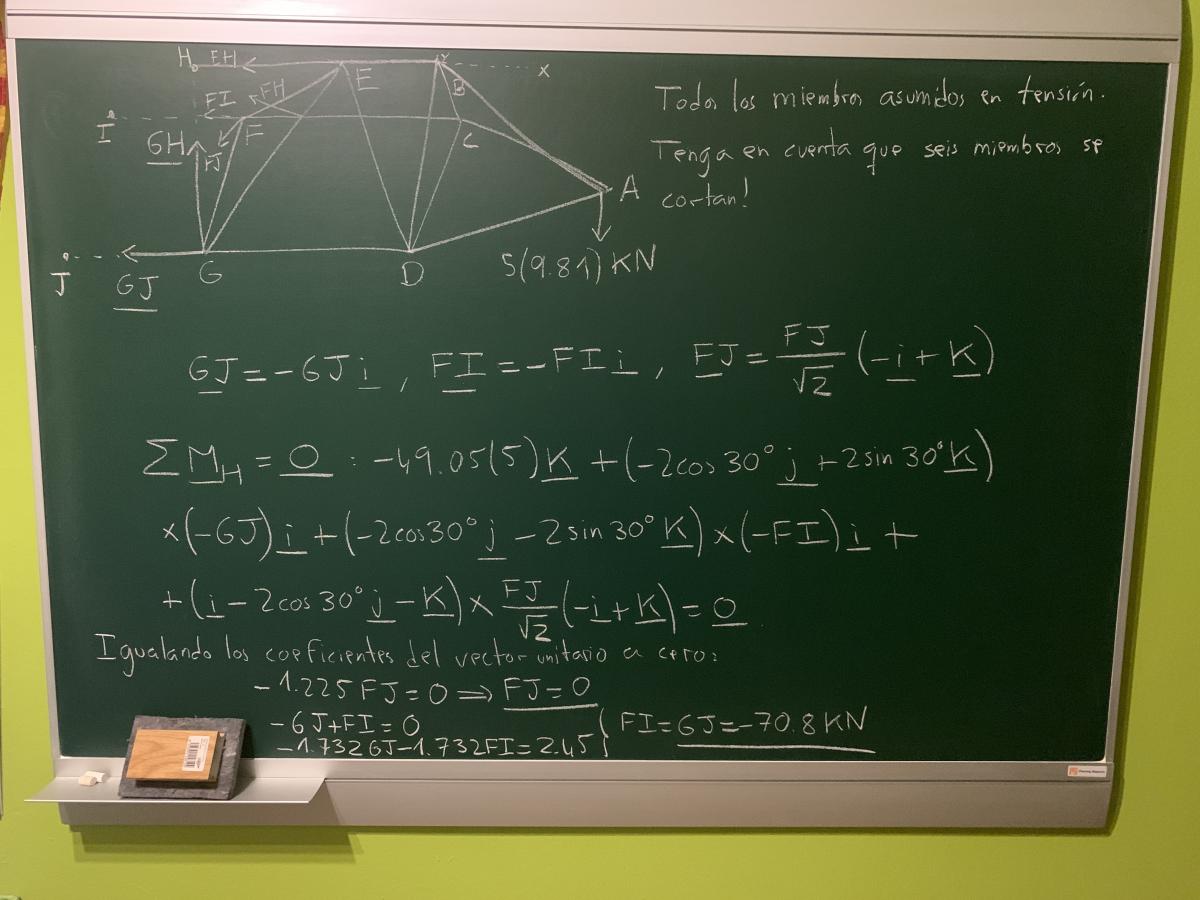 H EH E B x
I FI FH F C
GH FJ A
J GJ G D 5(9.81) KN
Todos los miembros asumidos en tensión.
Tenga en cuenta que seis miembros se
cortan!
GJ = -GJ i , FI = -FI i , FJ = FJ/√2 (-i + K)
Σ M_H = 0 : -49.05(5) K + (-2cos 30° j + 2sin 30° K)
x(-GJ) i + (-2cos30° j - 2sin 30° K) x (-FI) i +
+ (i - 2cos 30° j - K) x FJ/√2 (-i + K) = 0
Igualando los coeficientes del vector unitario a cero:
-1.225 FJ = 0 ⇒ FJ = 0
-GJ+FI = 0
-1.732GJ-1.732FI = 2.45 } FI = GJ = -70.8 KN